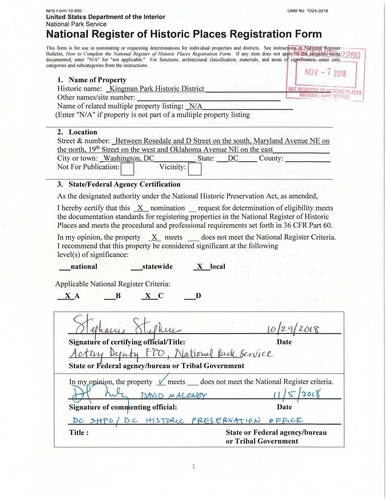 NPS Form 10-900 OMB No. 1024-0018
United States Department of the Interior
National Park Service
National Register of Historic Places Registration Form
This form is for use in nominating or requesting determinations for individual properties and districts. See instructions in National Register
Bulletin, How to Complete the National Register of Historic Places Registration Form. If any item does not apply to the property being
documented, enter "N/A" for "not applicable." For functions, architectural classification, materials, and areas of significance, enter only
categories and subcategories from the instructions.
2280
NOV - 7 2018
NAT. REGISTER OF HISTORIC PLACES
NATIONAL PARK SERVICE
1. Name of Property
Historic name: Kingman Park Historic District
Other names/site number:
Name of related multiple property listing: N/A
(Enter "N/A" if property is not part of a multiple property listing
2. Location
Street & number: Between Rosedale and D Street on the south, Maryland Avenue NE on
the north, 19th Street on the west and Oklahoma Avenue NE on the east
City or town: Washington, DC State: DC County:
Not For Publication: Vicinity:
3. State/Federal Agency Certification
As the designated authority under the National Historic Preservation Act, as amended,
I hereby certify that this X nomination request for determination of eligibility meets
the documentation standards for registering properties in the National Register of Historic
Places and meets the procedural and professional requirements set forth in 36 CFR Part 60.
In my opinion, the property X meets does not meet the National Register Criteria.
I recommend that this property be considered significant at the following
level(s) of significance:
national statewide X local
Applicable National Register Criteria:
X A B X C D
Stephanie Stephens 10/29/2018
Signature of certifying official/Title: Date
Acting Deputy FPO, National Park Service
State or Federal agency/bureau or Tribal Government
In my opinion, the property ✓ meets does not meet the National Register criteria.
DAVID MALONEY 11/5/2018
Signature of commenting official: Date
DC SHPO / DC HISTORIC PRESERVATION OFFICE
Title : State or Federal agency/bureau
or Tribal Government
1